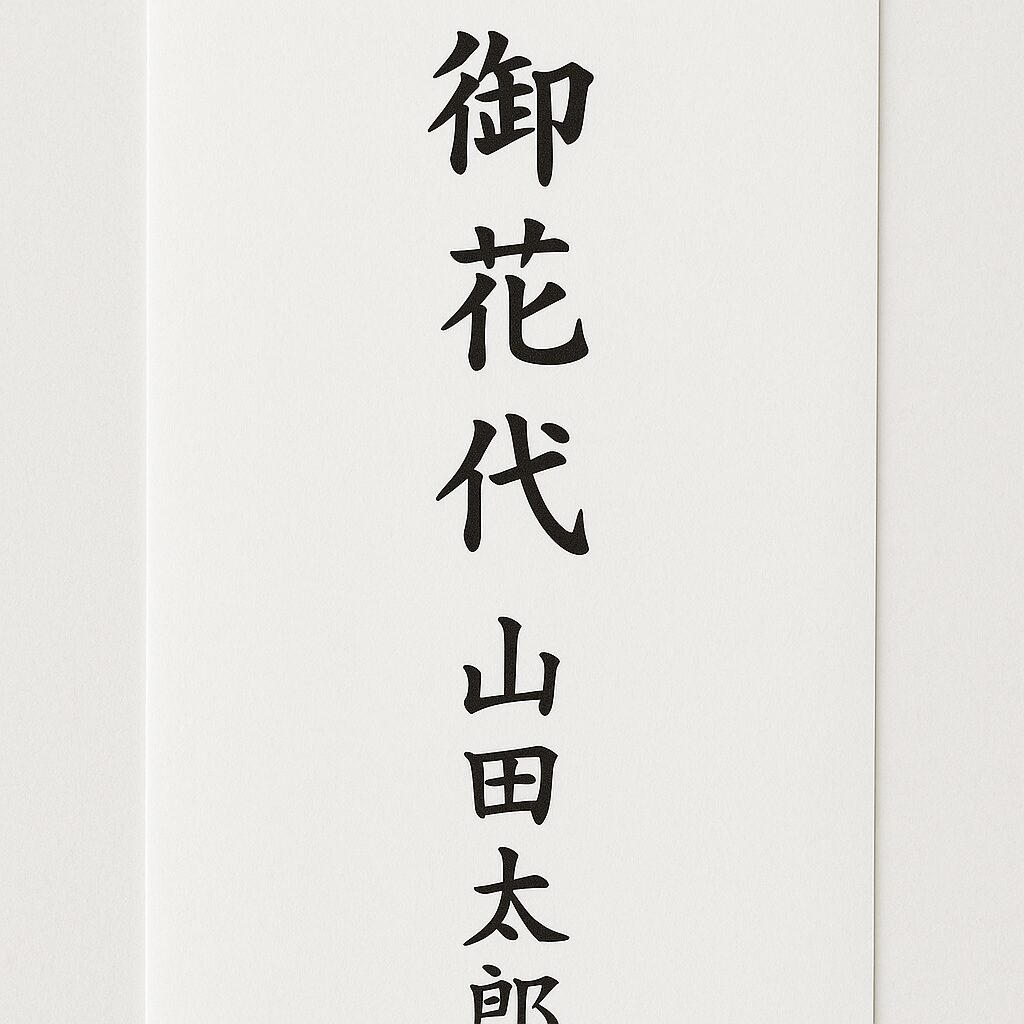 御花代
山田太郎